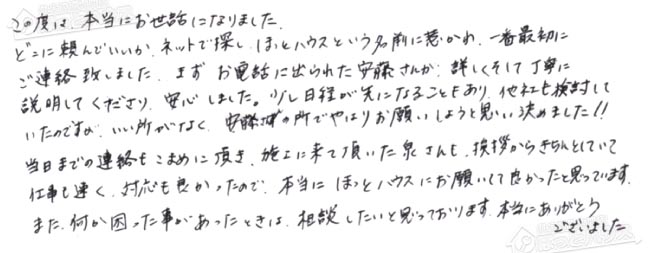 この度は、本当にお世話になりました。
どこに頼んでいいか、ネットで探し、ほっとハウスという名前に惹かれ、一番最初に
ご連絡致しました。まず お電話に出られた安藤さんが、詳しくそして丁寧に
説明してくださり、安心しました。少し日程が先になることもあり、他社も検討して
いたのですが、いい所がなく、安藤様の所でやはりお願いしようと思い決めました!!
当日までの連絡もこまめに頂き、施工に来て頂いた泉さんも、挨拶からきちんとしていて
仕事も速く、対応も良かったので、本当に ほっとハウスにお願いして良かったと思っています。
また、何か困った事があったときは、相談したいと思っております。本当にありがとう
ございました